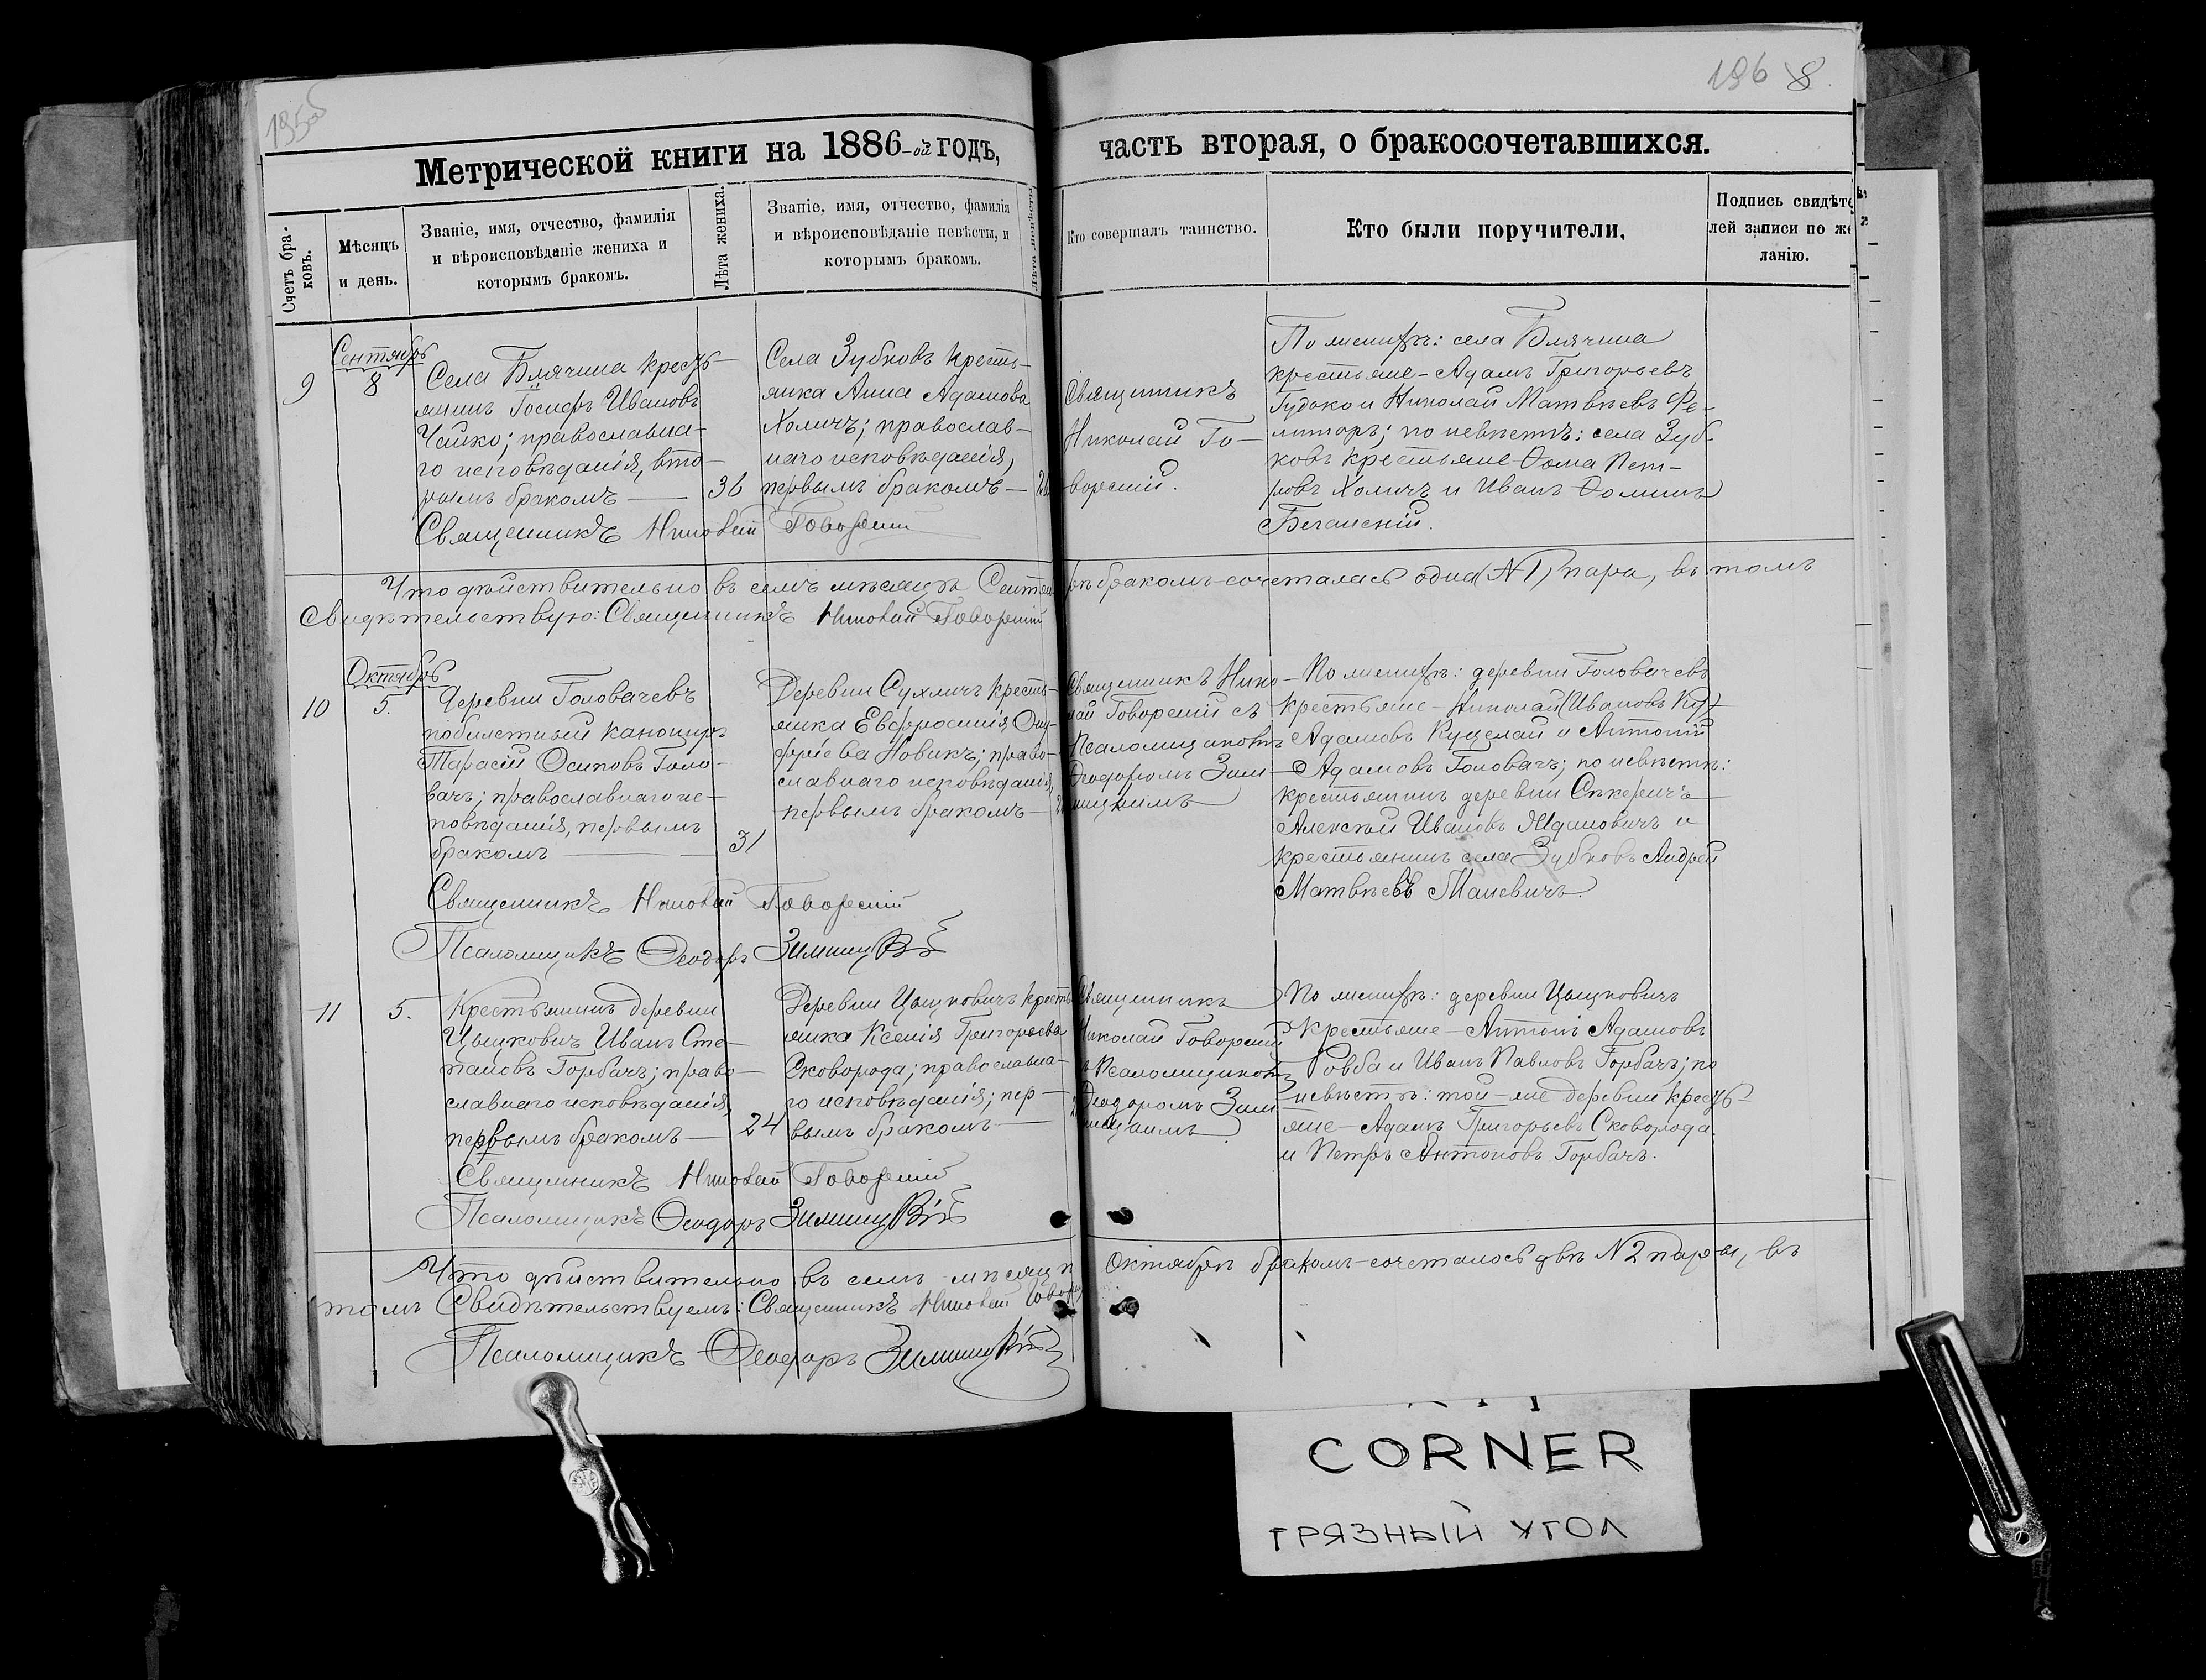 195об
196 8
Метрической книги на 1886-ой годъ,
часть вторая, о бракосочетавшихся.
Счетъ бра-
ковъ.
Мѣсяцъ
и день.
Званіе, имя, отчество, фамилія
и вѣроисповѣданіе жениха и
которымъ бракомъ.
Лѣта жениха.
Званіе, имя, отчество, фамилія
и вѣроисповѣданіе невѣсты, и
которымъ бракомъ.
Лѣта невѣсты
Кто совершалъ таинство.
Кто были поручители.
Подпись свидѣте
лей записи по же
ланію.
9
Сентябрь
8
Села Блячина кресть-
янинъ Іосифъ Ивановъ
Чайко; православна-
го исповѣданія, вто-
рымъ бракомъ
36
Села Зубковъ кресть-
янка Анна Адамова
Холичъ; православ-
наго исповѣданія,
первымъ бракомъ
Священникъ
Николай Го-
ворскій.
По женихѣ: села Блячина
крестьяне - Адамъ Григорьевъ
Гудько и Николай Матвѣевъ Фе-
; по невѣстѣ: села Зуб-
ковъ крестьяне Ѳома Пет-
ровъ Холичъ и Иванъ Ѳоминъ
Беганскій.
Священникъ Николай Говорскій
Что дѣйствительно въ семъ мѣсяцѣ Сентябрѣ бракомъ сочеталась одна (N 1) пара, въ томъ
Свидѣтельствую: Священникъ Николай Говорскій
10
Октябрь
5.
Деревни Головачевъ
побилетный канониръ
Тарасій Осиповъ Голо-
вачъ; православнаго ис-
повѣданія, первымъ
бракомъ
31
Деревни Сухличъ кресть-
янка Евфросинія Ону-
фріева Новикъ; право-
славнаго исповѣданія,
первымъ бракомъ
Священникъ Нико-
лай Говорскій съ
Псаломщикомъ
Ѳеодоромъ Зим-
ницкимъ
По женихѣ: деревни Головачевъ
крестьяне - Николай (Ивановъ Ку)
Адамовъ Куцелай и Антоній
Адамовъ Головачъ; по невѣстѣ:
крестьянинъ деревни Сѣкеричъ
Алексѣй Ивановъ Ждановичъ и
крестьянинъ села Зубковъ Андрей
Матвѣевъ Маневичъ.
Священникъ Николай Говорскій
Псаломщикъ Ѳеодоръ Зимницкій
11
5.
Крестьянинъ деревни
Цыцковичъ Иванъ Сте-
пановъ Горбачъ; право-
славнаго исповѣданія,
первымъ бракомъ
24
Деревни Цыцковичъ кресть-
янка Ксенія Григорьева
Сковорода; православна-
го исповѣданія; пер-
вымъ бракомъ
Священникъ
Николай Говорскій
съ Псаломщикомъ
Ѳеодоромъ Зим-
ницкимъ
По женихѣ: деревни Цыцковичъ
крестьяне - Антонъ Адамовъ
Ровба и Иванъ Павловъ Горбачъ; по
невѣстѣ: той-же деревни кресть-
яне - Адамъ Григорьевъ Сковорода
и Петръ Антоновъ Горбачъ.
Священникъ Николай Говорскій
Псаломщикъ Ѳеодоръ Зимницкій
Что дѣйствительно въ семъ мѣсяцѣ Октябрѣ бракомъ сочеталось двѣ N 2 пары, въ
томъ Свидѣтельствуемъ: Священникъ Николай Говорскій
Псаломщикъ Ѳеодоръ Зимницкій
CORNER
ГРЯЗНЫЙ УГОЛ